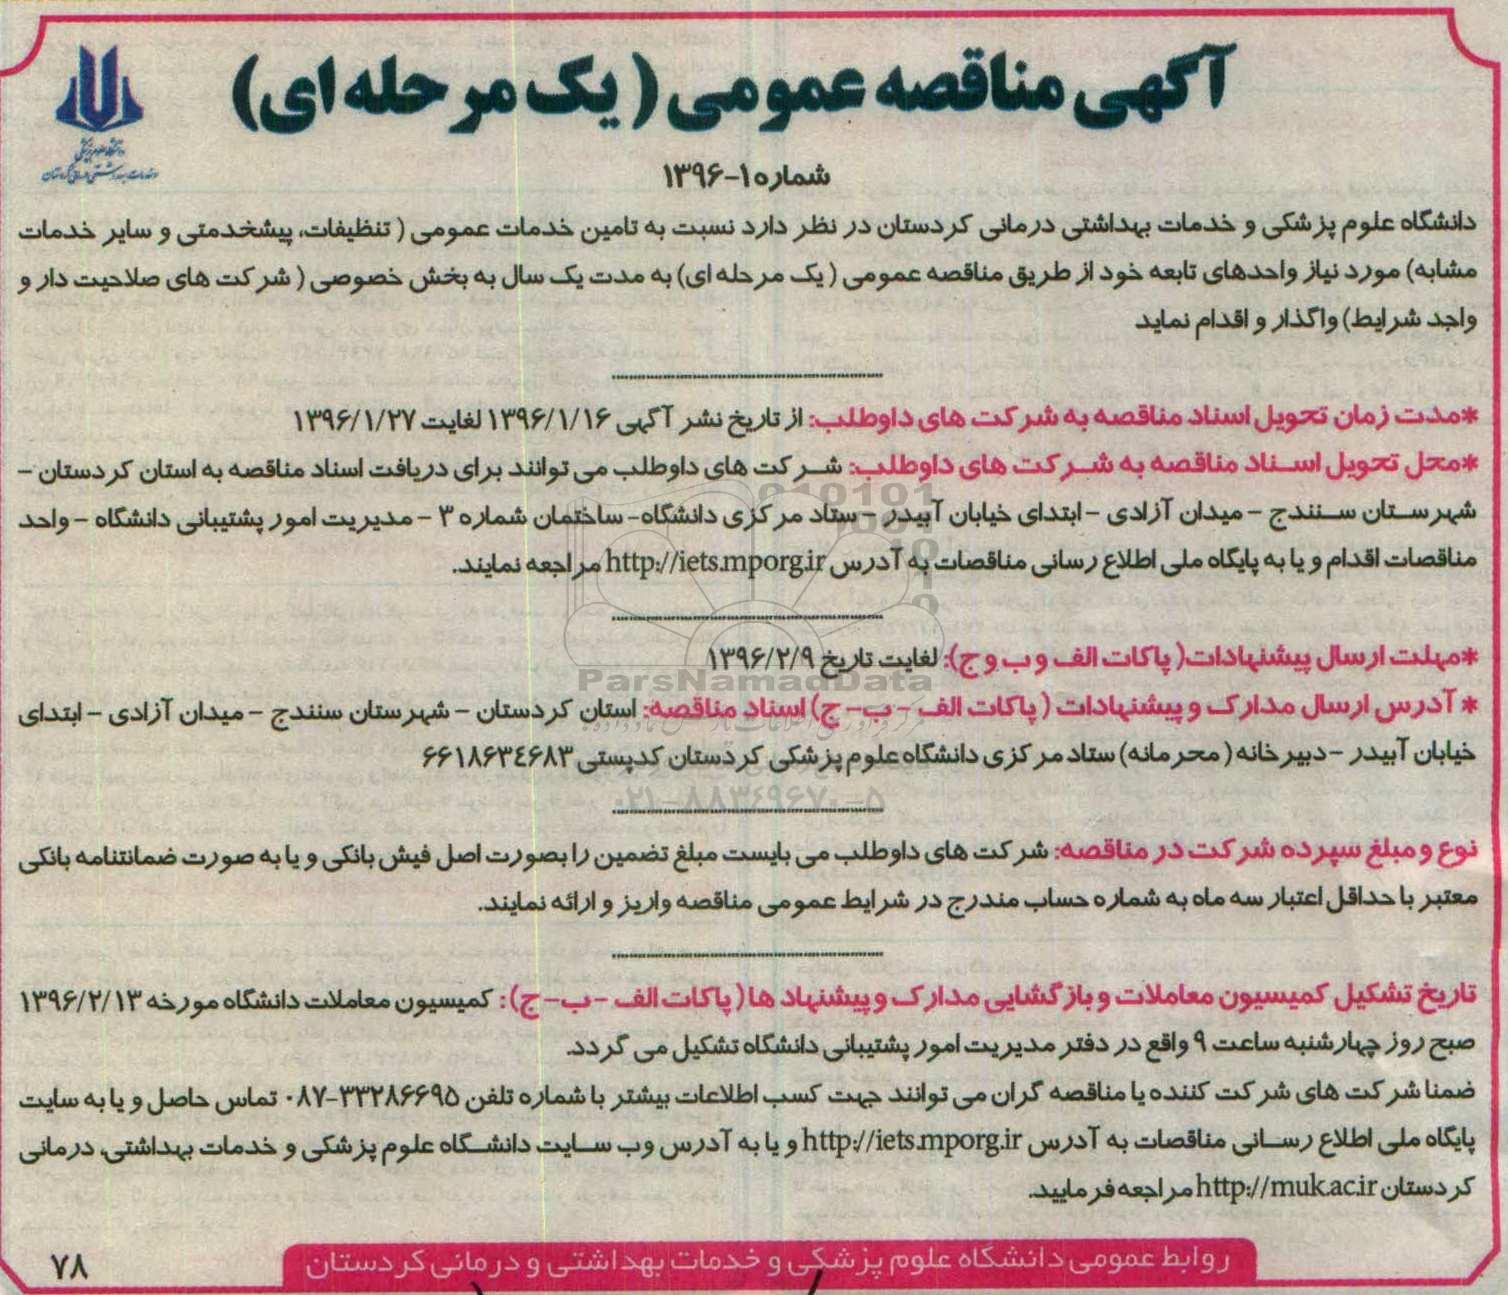 آگهی مناقصه عمومی ( یک مرحله ای)
دانشگاه علوم پزشکی
و خدمات بهداشتی درمانی کردستان
شماره ۱-۱۳۹۶
دانشگاه علوم پزشکی و خدمات بهداشتی درمانی کردستان در نظر دارد نسبت به تامین خدمات عمومی ( تنظیفات، پیشخدمتی و سایر خدمات
مشابه) مورد نیاز واحدهای تابعه خود از طریق مناقصه عمومی ( یک مرحله ای) به مدت یک سال به بخش خصوصی ( شرکت های صلاحیت دار و
واجد شرایط) واگذار و اقدام نماید
*مدت زمان تحویل اسناد مناقصه به شرکت های داوطلب: از تاریخ نشر آگهی ۱۳۹۶/۱/۱۶ لغایت ۱۳۹۶/۱/۲۷
*محل تحویل اسناد مناقصه به شرکت های داوطلب: شرکت های داوطلب می توانند برای دریافت اسناد مناقصه به استان کردستان –
شهرستان سنندج – میدان آزادی – ابتدای خیابان آبیدر – ستاد مرکزی دانشگاه- ساختمان شماره ۳ – مدیریت امور پشتیبانی دانشگاه – واحد
مناقصات اقدام و یا به پایگاه ملی اطلاع رسانی مناقصات به آدرس http://iets.mporg.ir مراجعه نمایند.
*مهلت ارسال پیشنهادات( پاکات الف و ب و ج): لغایت تاریخ ۱۳۹۶/۲/۹
ParsNamadData
* آدرس ارسال مدارک و پیشنهادات ( پاکات الف – ب- ج) اسناد مناقصه: استان کردستان – شهرستان سنندج – میدان آزادی – ابتدای
خیابان آبیدر –دبیرخانه ( محرمانه) ستاد مرکزی دانشگاه علوم پزشکی کردستان کدپستی ۶۶۱۸۶۳۴۶۸۳
۰۲۱-۸۸۳۴۹۶۷۰-۵
نوع و مبلغ سپرده شرکت در مناقصه: شرکت های داوطلب می بایست مبلغ تضمین را بصورت اصل فیش بانکی و یا به صورت ضمانتنامه بانکی
معتبر با حداقل اعتبار سه ماه به شماره حساب مندرج در شرایط عمومی مناقصه واریز و ارائه نمایند.
تاریخ تشکیل کمیسیون معاملات و بازگشایی مدارک و پیشنهاد ها ( پاکات الف –ب- ج) : کمیسیون معاملات دانشگاه مورخه ۱۳۹۶/۲/۱۳
صبح روز چهارشنبه ساعت ۹ واقع در دفتر مدیریت امور پشتیبانی دانشگاه تشکیل می گردد.
ضمنا شرکت های شرکت کننده یا مناقصه گران می توانند جهت کسب اطلاعات بیشتر با شماره تلفن ۳۳۲۸۶۶۹۵-۰۸۷ تماس حاصل و یا به سایت
پایگاه ملی اطلاع رسانی مناقصات به آدرس http://iets.mporg.ir و یا به آدرس وب سایت دانشگاه علوم پزشکی و خدمات بهداشتی، درمانی
کردستان http://muk.ac.ir مراجعه فرمایید.
روابط عمومی دانشگاه علوم پزشکی و خدمات بهداشتی و درمانی کردستان
۷۸